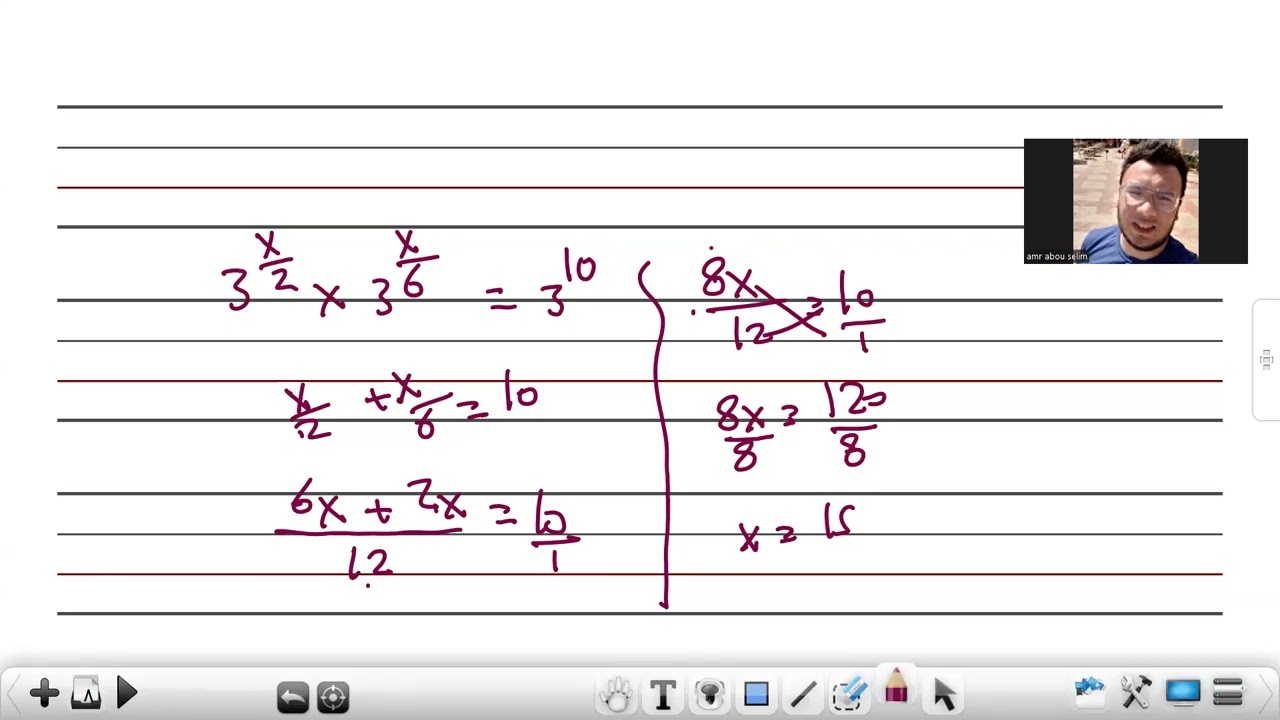 3^(x/2) × 3^(x/6) = 3^10
x/2 + x/6 = 10
(6x + 2x)/12 = 10/1
8x/12 = 10/1
8x/8 = 120/8
x = 15
amr abou selim
T